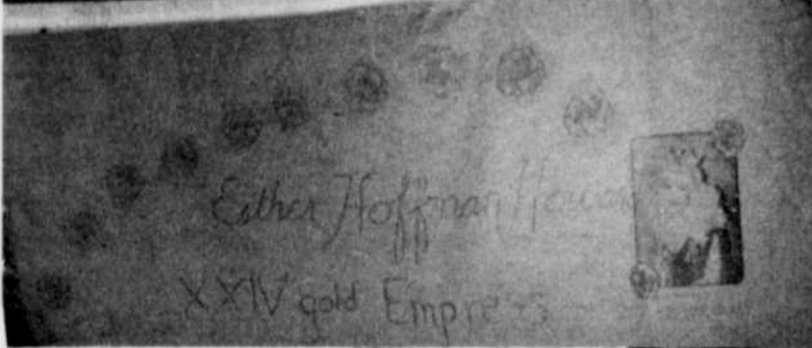 Esther Hoffman Howard
XXIV gold Empress